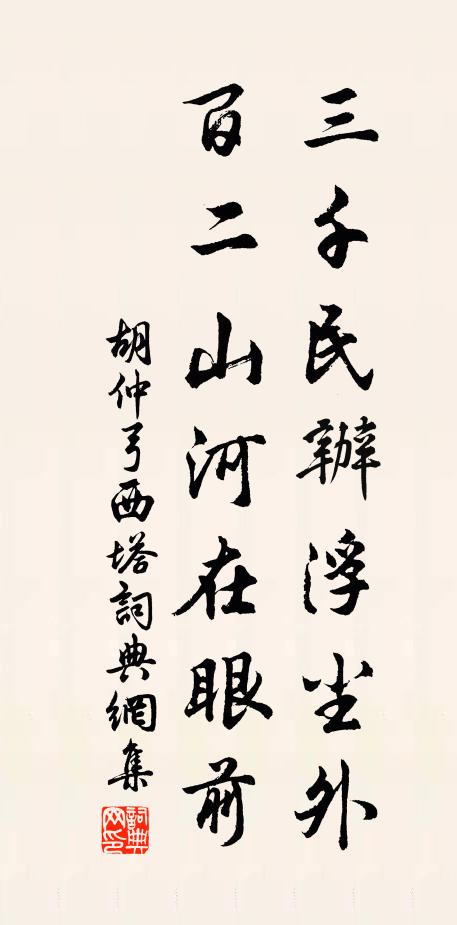 三千民辦浮尘外
百二山河在眼前
胡仲弓西塔詞典網集
詞典網印